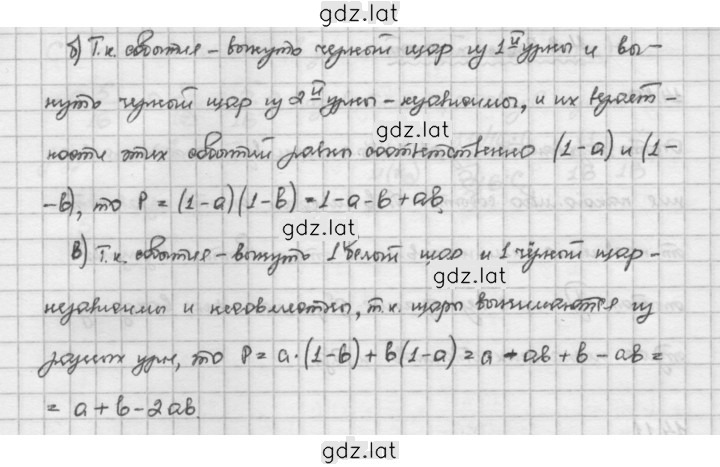 gdz.lat
б) Т.к. события – вынуть черный шар из 1й урны и вы-
нуть черный шар из 2й урны – независимы, и их вероят-
gdz.lat
ности этих событий равны соответственно (1-a) и (1-
-b), то P = (1-a)(1-b) = 1-a-b+ab.
gdz.lat
в) Т.к. события – вынуть 1 белый шар и 1 чёрный шар -
gdz.lat
независимы и несовместны, т.к. шары вынимаются из
разных урн, то P = a·(1-b) + b(1-a) = a - ab + b - ab =
= a + b - 2ab.
gdz.lat